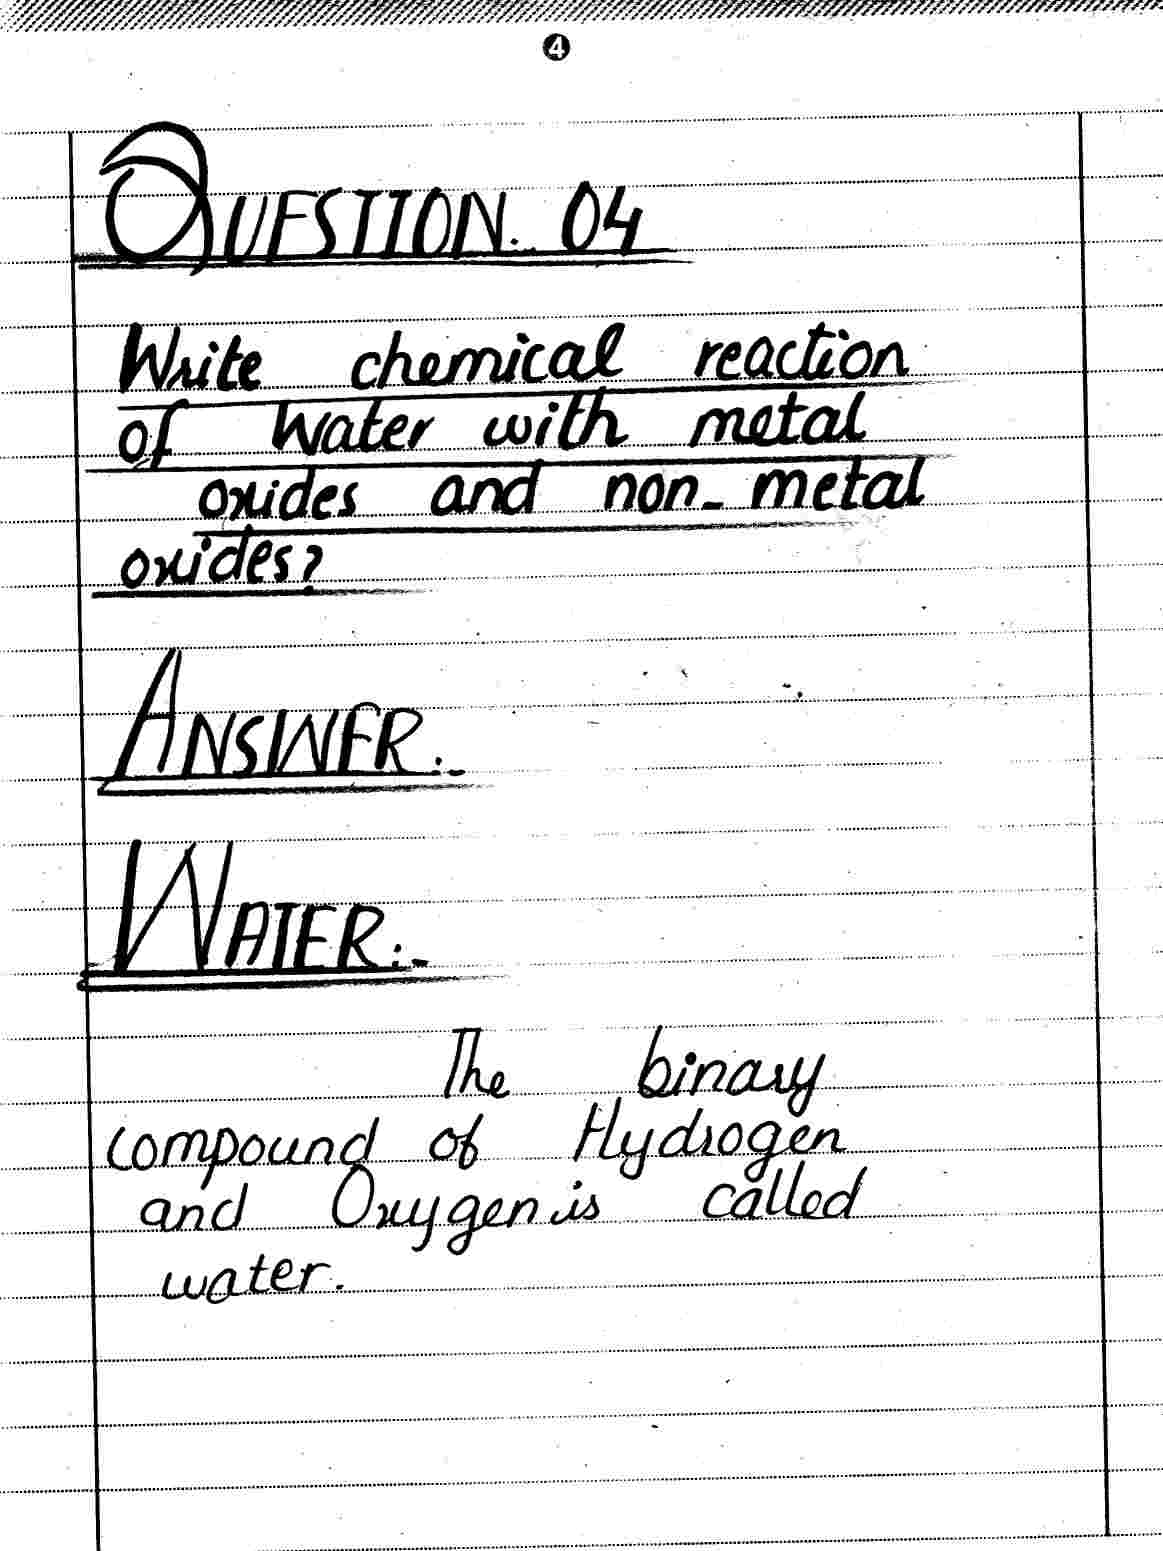 4
QUESTION:- 04
Write chemical reaction
of Water with metal
oxides and non-metal
oxides?
ANSWER:-
WATER:-
The binary
compound of Hydrogen
and Oxygen is called
water.